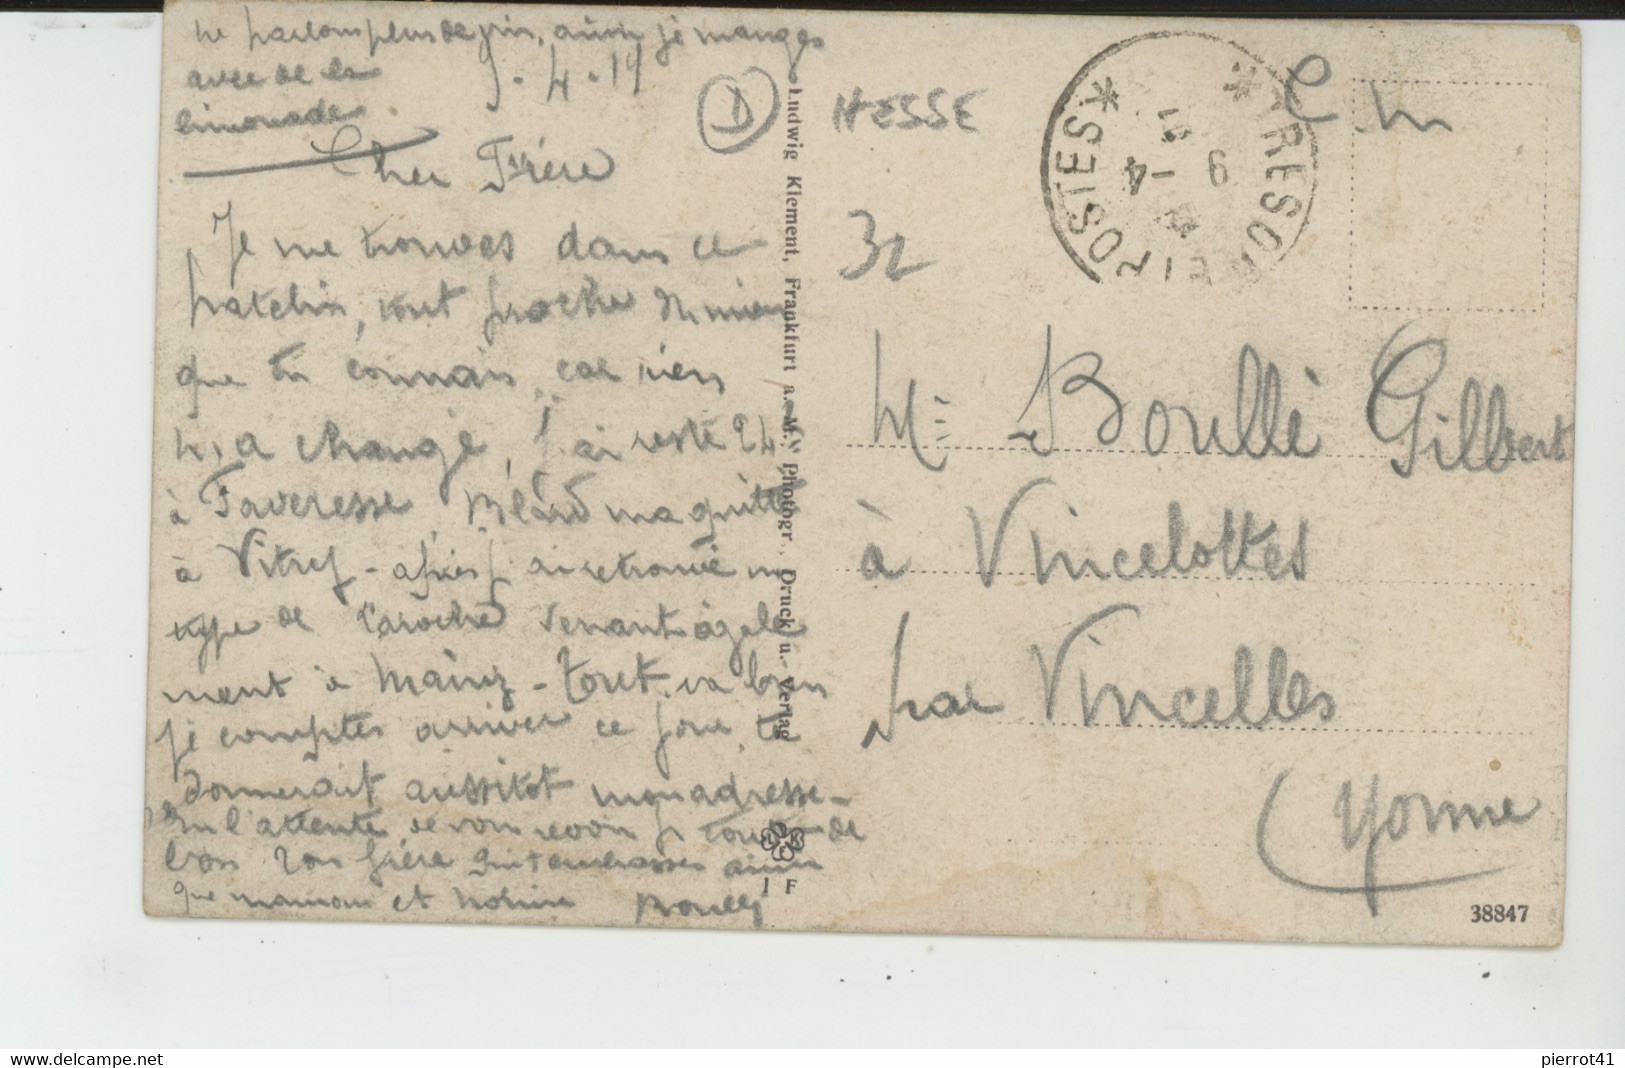 ne parlons plus de vin, aussi je manges
avec de la
limonade
9-4-19
Cher Frère
Je me trouves dans ce
patelin, tout proche
que tu connais, car rien
n,a changé, J'ai resté 24
à Faveresse, ma quitté
à Vitry - après ai retrouvé un
type de Laroche venant égale
ment à Mainz - tout, va bien
je comptes arriver ce jour, te
donnerait aussitot mon adresse -
En l'attente de vous revoir je
ton frère qui t'embrasses ainsi
que maman et
D HESSE
32
C.M
* TRESOR ET POSTES *
9 - 4
19
Mr Boullé Gilbert
à Vincelottes
par Vincelles
(Yonne
Ludwig Klement, Frankfurt a. M. Photogr., Druck u. Verlag
L K
I F
38847
www.delcampe.net
pierrot41